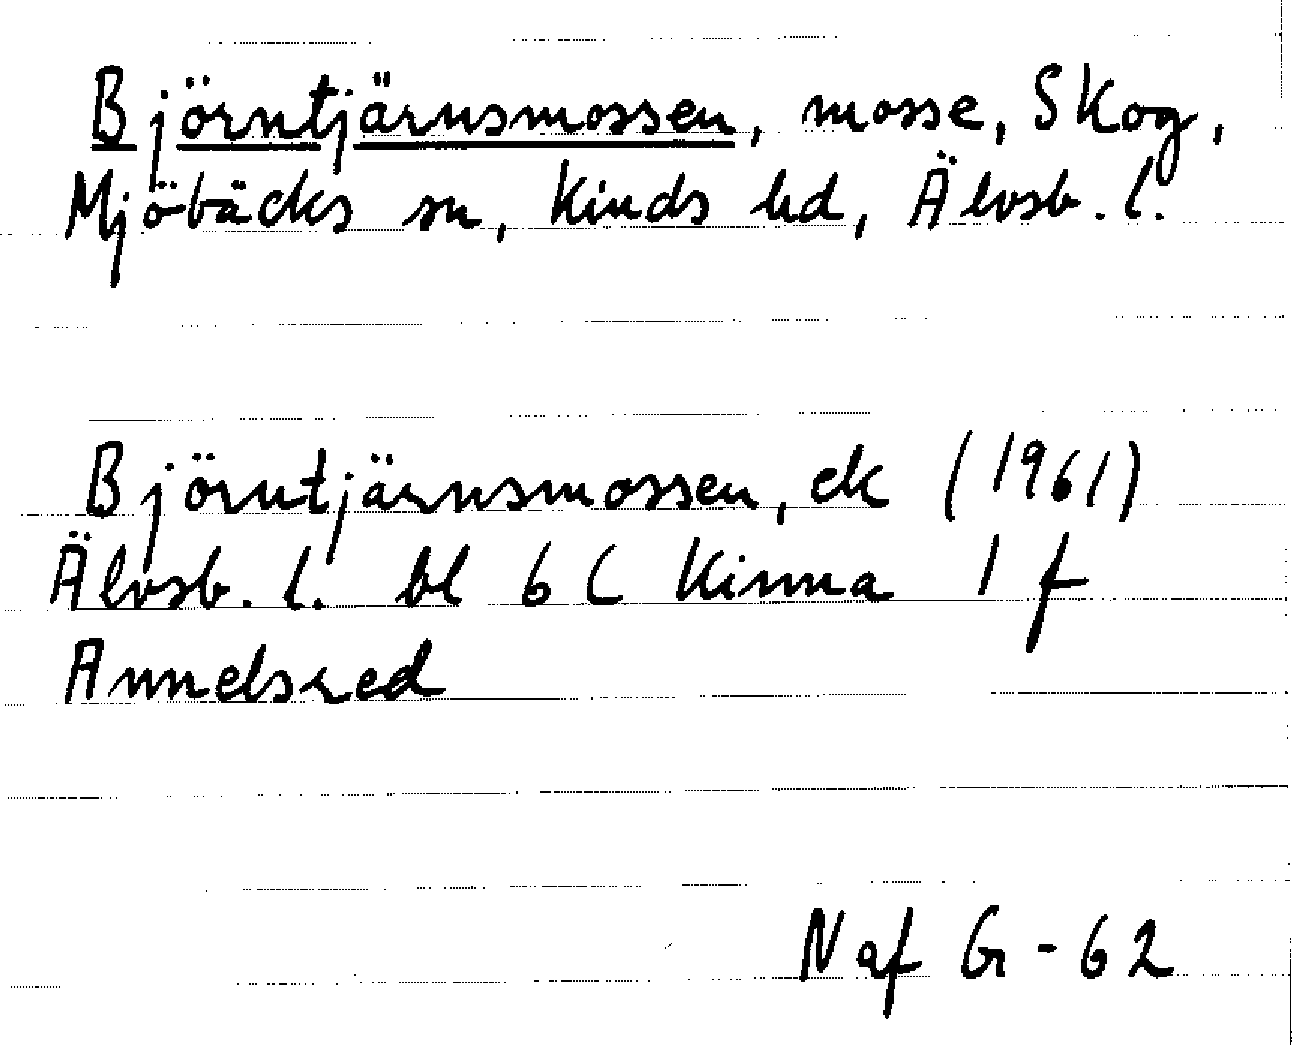 Björntjärnsmossen, mosse, Skog,
Mjöbäcks sn, Kinds hd, Älvsb. l.
Björntjärnsmossen, ek (1961)
Älvsb. l. bl 6 C Kinna 1 f
Annelsred
Naf G-62